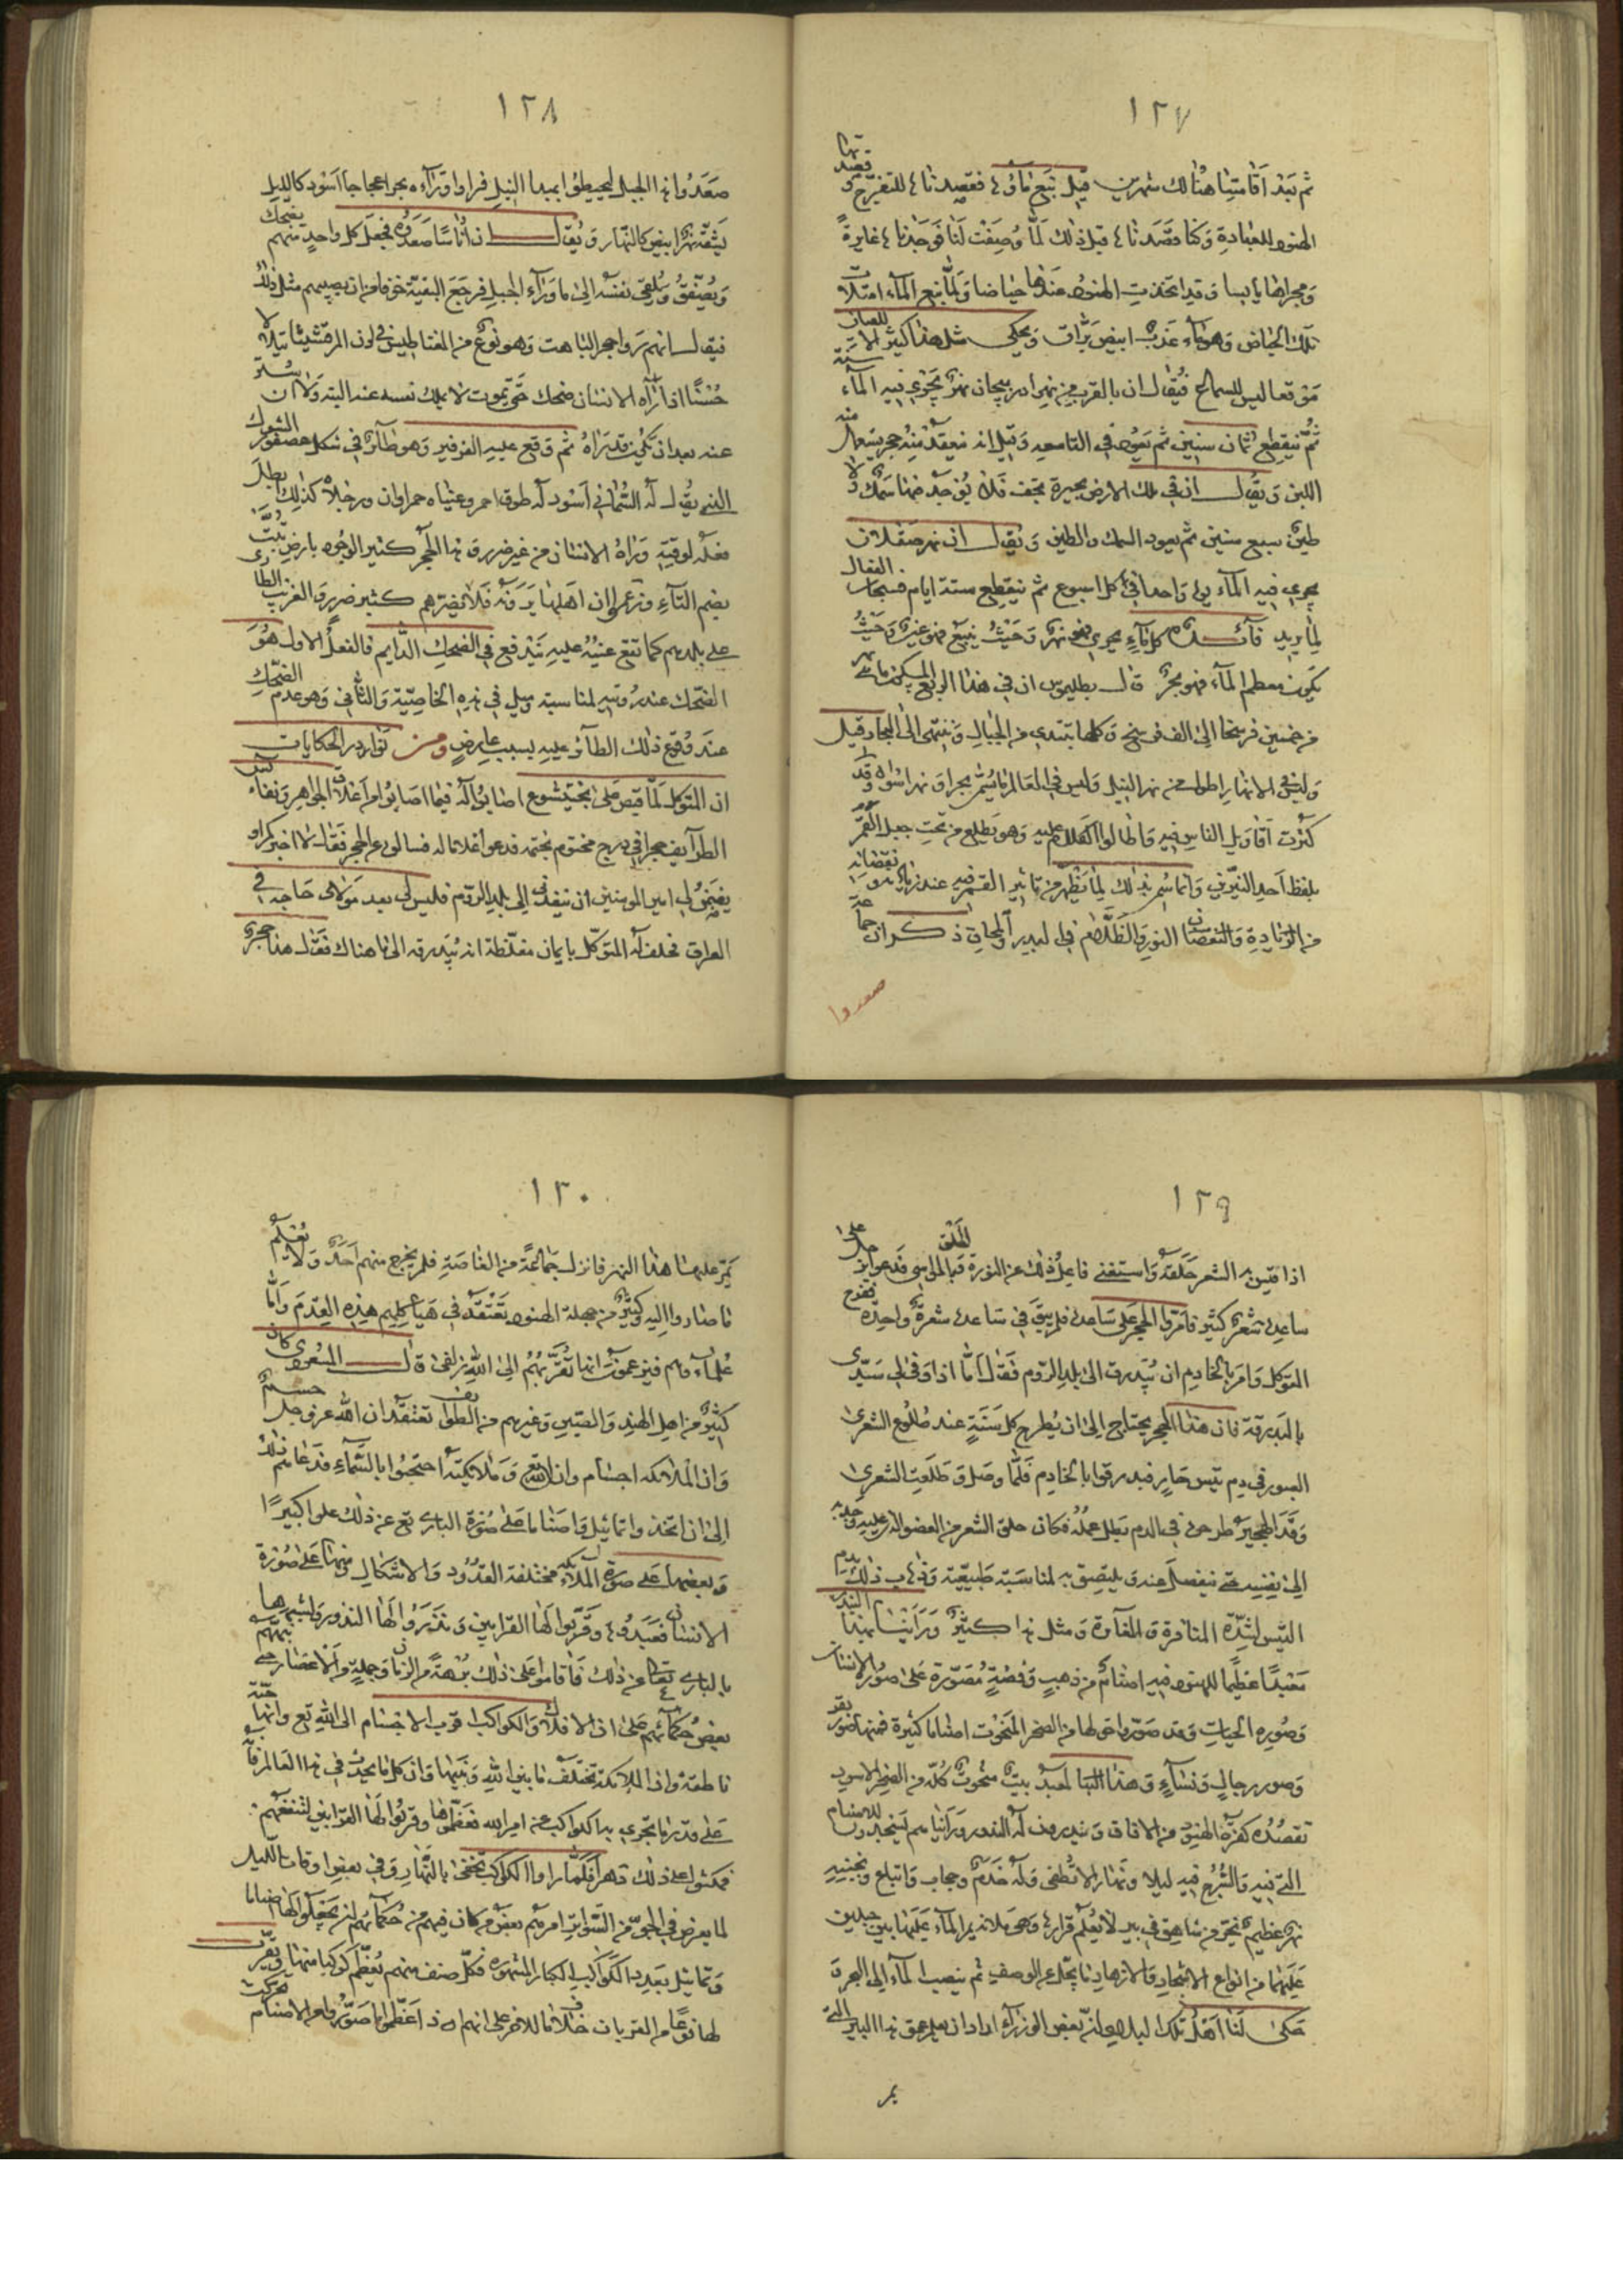 ١٢٧
ثم بعد اقامتنا هنالك شهرين قيل نبع ماؤها فقصدناها للتفرج وقصدتها
الهنود للعبادة وكنا قصدناها قبل ذلك لما وصفت لنا فوجدناها غايرة
ومجراها يابسا وقد اتخذت الهنود عندها حياضا ولما نبع الماء امتلأت
تلك الحياض وهو ماء عذب ابيض براق ويحكى مثل هذا كثير الا ان للعيان
موقعا ليس للسماع فيقال ان بالقرب من نهر اذربيجان نهر يجري فيه الماء سنة
ثم ينقطع ثمان سنين ثم يعود في التاسعة وقيل انه ينعقد منه حجر يستعمل منه
اللبن ويقال ان في تلك الارض بحيرة تجف فلا يوجد فيها سمك ولا
طين سبع سنين ثم يعود السمك والطين ويقال ان نهر صقلاب
يجري فيه الماء يوما واحدا في كل اسبوع ثم ينقطع ستة ايام فسبحان الفعال
لما يريد فائدة كل ماء يجري فهو نهر وحيث ينبع فهو عين وحيث
يكون معظم الماء فهو بحر قال بطليموس ان في هذا الربع المسكون مائتي نهر
من خمسين فرسخا الى الف فرسخ وكلها تبتدي من الجبال وتنتهي الى البحار قيل
وليس في الانهار اطول من نهر النيل وليس في العالم ما يسمى بحرا ونهرا سواه وقد
كثرت اقاويل الناس فيه واطالوا الكلام عليه وهو يطلع من تحت جبل القمر
بلفظ احد النيرين وانما سمي بذلك لما يظهر من تاثير القمر فيه عند زيادته ونقصانه
من الزيادة والنقصان النور والظلام في البدر والمحاق ذكر ان جماعة
صعدوا
١٢٨
صعدوا هذا الجبل ليحيطوا بمبدا النيل فراوا وراءه بحرا عجاجا اسود كالليل
يشقه نهر ابيض كالنهار ويقال ان اناسا صعدوه فجعل كل واحد منهم يضحك
ويصفق ويلقي نفسه الى ما وراء الجبل فرجع البقية خوفا من ان يصيبهم مثل ذلك
فيقال انهم راوا حجر الباهت وهو نوع من المغناطيس في لون المرقشيثا يتلالا
حسنا اذا راه الانسان ضحك حتى يموت لا يملك نفسه عنه البتة ولا ان يستتر
عنه بعد ان يكون قد راه ثم وقع عليه الفرفير وهو طائر في شكل عصفور الشوك
الذي يقال له السماني اسود له طوق احمر وعيناه حمراوان ورجلاه كذلك بطل
فعله لوقته وراه الانسان من غير ضرر وهذا الحجر كثير الوجود بارض تبت
بضم التاء ويزعمون ان اهلها يرونه فلا يضرهم كثير ضرر والغريب الطاري
على بلدهم كما تقع عينه عليه يقع في الضحك الدايم فالفعل الاول هو
الضحك عند رؤيته لمناسبة وميل في هذه الخاصية والثاني وهو عدم الضحك
عند وقوع ذلك الطائر عليه بسبب عارض ومن نوادر الحكايات
ان المتوكل لما قبض على بختيشوع اصابوا له فيما اصابوا من اعلاق الجواهر ونفائس
الطرائف حجرا في درج مختوم بختمه فدعوا غلاما له فسالوه عن الحجر فقال لا اخبركم او
يضمن لي امير المومنين ان ينفذني الى بلد الروم فليس لي بعد مولاي حاجة في
العراق فحلف له المتوكل بايمان مغلظة انه يبدرقه الى ما هناك فقال هذا حجر
١٢٩
اذا قيس به الشعر حلقه واستغنى فاعل ذلك عن النورة للحلق فبالمواسي فدعوا برجل على
ساعده شعر كثير فامروا الحجر على ساعده فلم يبق في ساعده شعرة واحدة ففرح
المتوكل وامر بالخادم ان يبدرق الى بلد الروم فقال اما اذا وفى لي سيدي
بالبدرقة فان هذا الحجر يحتاج الى ان يطرح كل سنة عند طلوع الشعرى
العبور في دم تيس حار فبدرقوا بالخادم فلما وصل وطلعت الشعرى
الى نفسه حتى ينفصل عنه ويلتصق به لمناسبة طبيعية
التيس لشدة المنافرة والمغايرة ومثل هذا كثير وراينا
معبدا عظيما للهنود فيه اصنام من ذهب وفضة مصورة على صورة الانسان
وصورة الحيات وقد صوروا حولها من الصخر المنحوت اصناما كثيرة فمنها صور بقر
وصور رجال ونساء وهذا المعبد بيت منحوت كله من الصخر الاسود
تقصده كفرة الهنود من الافاق وينذرون له النذور وراينا هم يسجدون للاصنام
التي فيه والسرج فيه ليلا ونهارا لا تطفى وله خدم وحجاب واتباع وبجنبه
نهر عظيم
عليهما من انواع الاشجار والازهار ما يجل عن الوصف ثم ينصب الماء الى البحر و
حكى لنا اهل تلك البلد ان بعض الوزراء اراد ان يعلم عمق هذا البير التي
يمر
١٣٠
يمر عليها هذا النهر فانزل جماعة من الغاصة فلم يخرج منهم احد ولا يعلم
ما صاروا اليه وكثير من جهلة الهنود تعتقد في هياكلهم هذه القدم واما
علماوهم فيزعمون انها تقربهم الى الله زلفى قال المسعودي كان
كثير من اهل الهند والصين وغيرهم من الطوايف تعتقد ان الله عز وجل جسم
وان الملائكة اجسام وان الله وملائكته احتجبوا بالسماء فدعاهم ذلك
الى ان اتخذوا تماثيل واصناما على صورة الباري تع عن ذلك علوا كبيرا
وبعضها على صورة الملائكة مختلفة القدود والاشكال ومنها على صورة
الانسان فعبدوها وقربوا لها القرابين ونذروا لها النذور ولشبهها
بالباري تعالى عن ذلك فاقاموا على ذلك برهة من الزمان وجملة من الاعصار حتى نبههم
بعض حكمائهم على ان الافلاك والكواكب اقرب الاجسام الى الله تع وانها حية
ناطقة وان الملائكة تختلف ما بين الله وبينها وان كل ما يحدث في هذا العالم فانه
على قدر ما تجري به الكواكب عن امر الله فعظموها وقربوا لها القرابين لتنفعهم
فمكثوا على ذلك دهرا فلما راوا الكواكب تخفى بالنهار وفي بعض اوقات الليل
لما يعرض في الجو من السواتر امرهم بعض من كان فيهم من حكمائهم ان يجعلوا لها اصناما
وتماثيل بعدد الكواكب الكبار المشهورة فكل صنف منهم يعظم كوكبا منها ويقرب
لها نوعا من القربان خلاف ما للاخر على انهم اذا عظموا ما صوروا من الاصنام تحركت